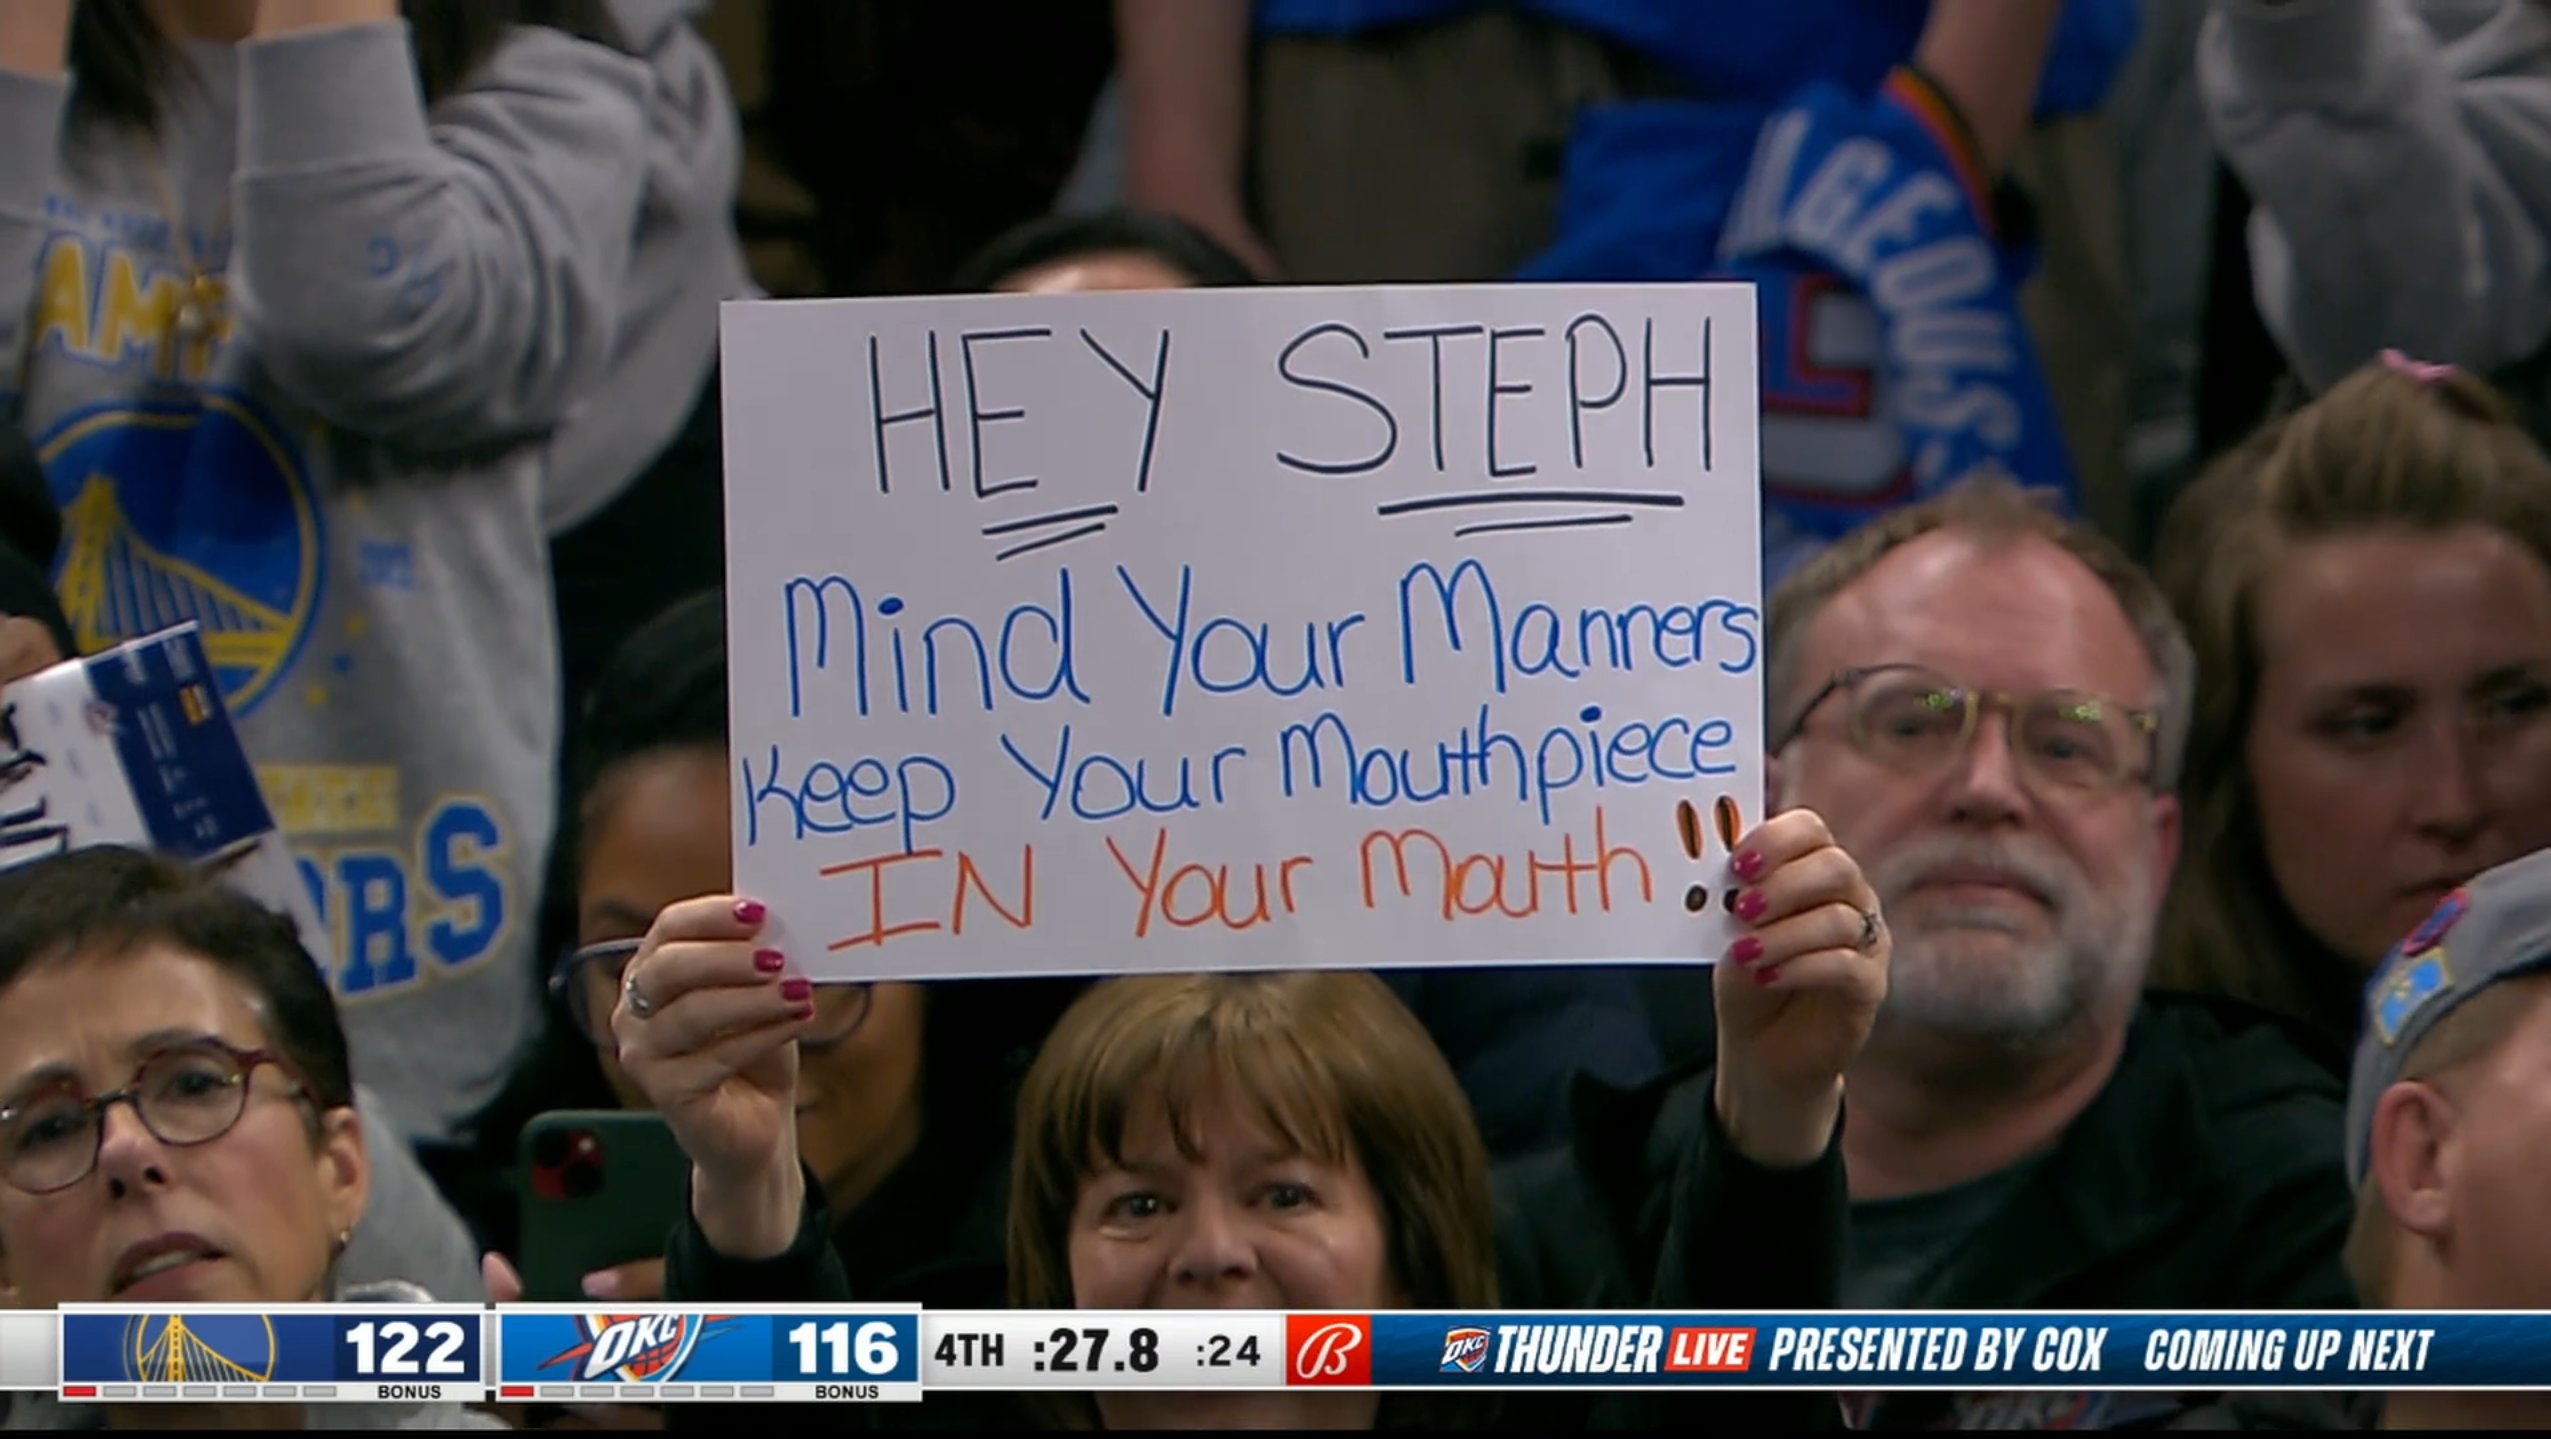 HEY STEPH
Mind Your Manners
Keep Your Mouthpiece
IN Your Mouth!!
122
BONUS
OKC
116
BONUS
4TH :27.8 :24
B
OKC THUNDER LIVE PRESENTED BY COX COMING UP NEXT